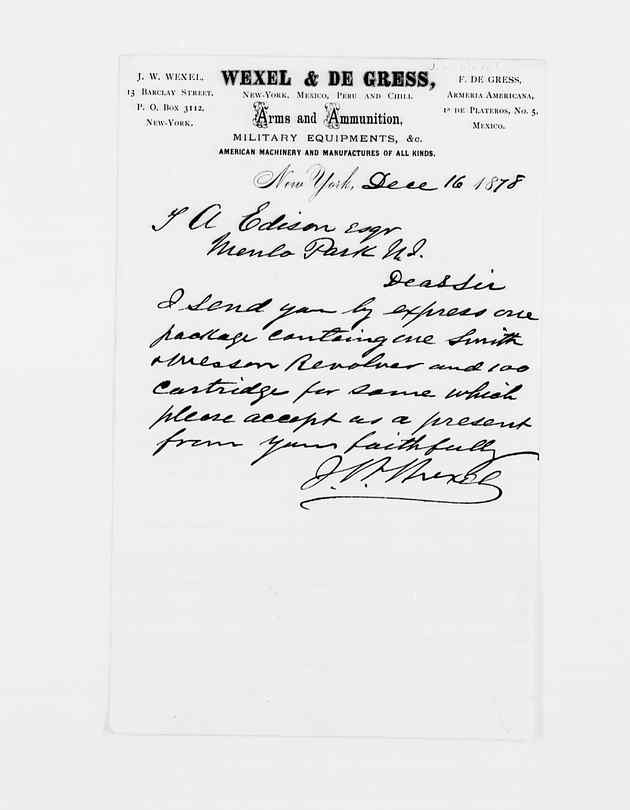 J. W. WEXEL,
13 BARCLAY STREET,
P. O. BOX 3112,
NEW-YORK.
WEXEL & DE GRESS,
NEW-YORK, MEXICO, PERU AND CHILI.
Arms and Ammunition,
MILITARY EQUIPMENTS, &c.
AMERICAN MACHINERY AND MANUFACTURES OF ALL KINDS.
F. DE GRESS,
ARMERIA AMERICANA,
1ª DE PLATEROS, NO. 5,
MEXICO.
New York, Dece 16 1878
T A Edison esqr
Menlo Park N.J.
Dear Sir
I send you by express one
package containg one Smith
& Wesson Revolver and 100
cartridge for same which
please accept as a present
from yours faithfully
J. W. Wexel